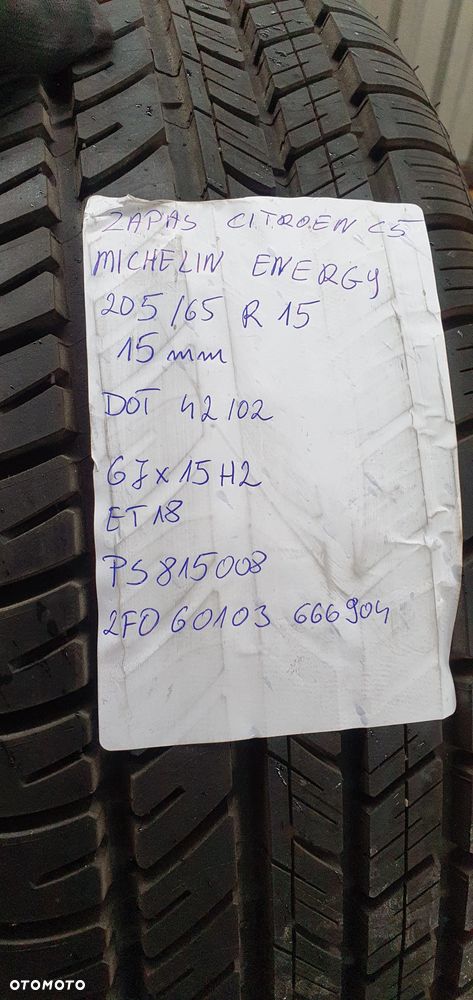 ZAPAS CITROEN C5
MICHELIN ENERGY
205/65 R 15
15 mm
DOT 42/02
6Jx15H2
ET18
PS815008
2FO60103 666904
OTOMOTO